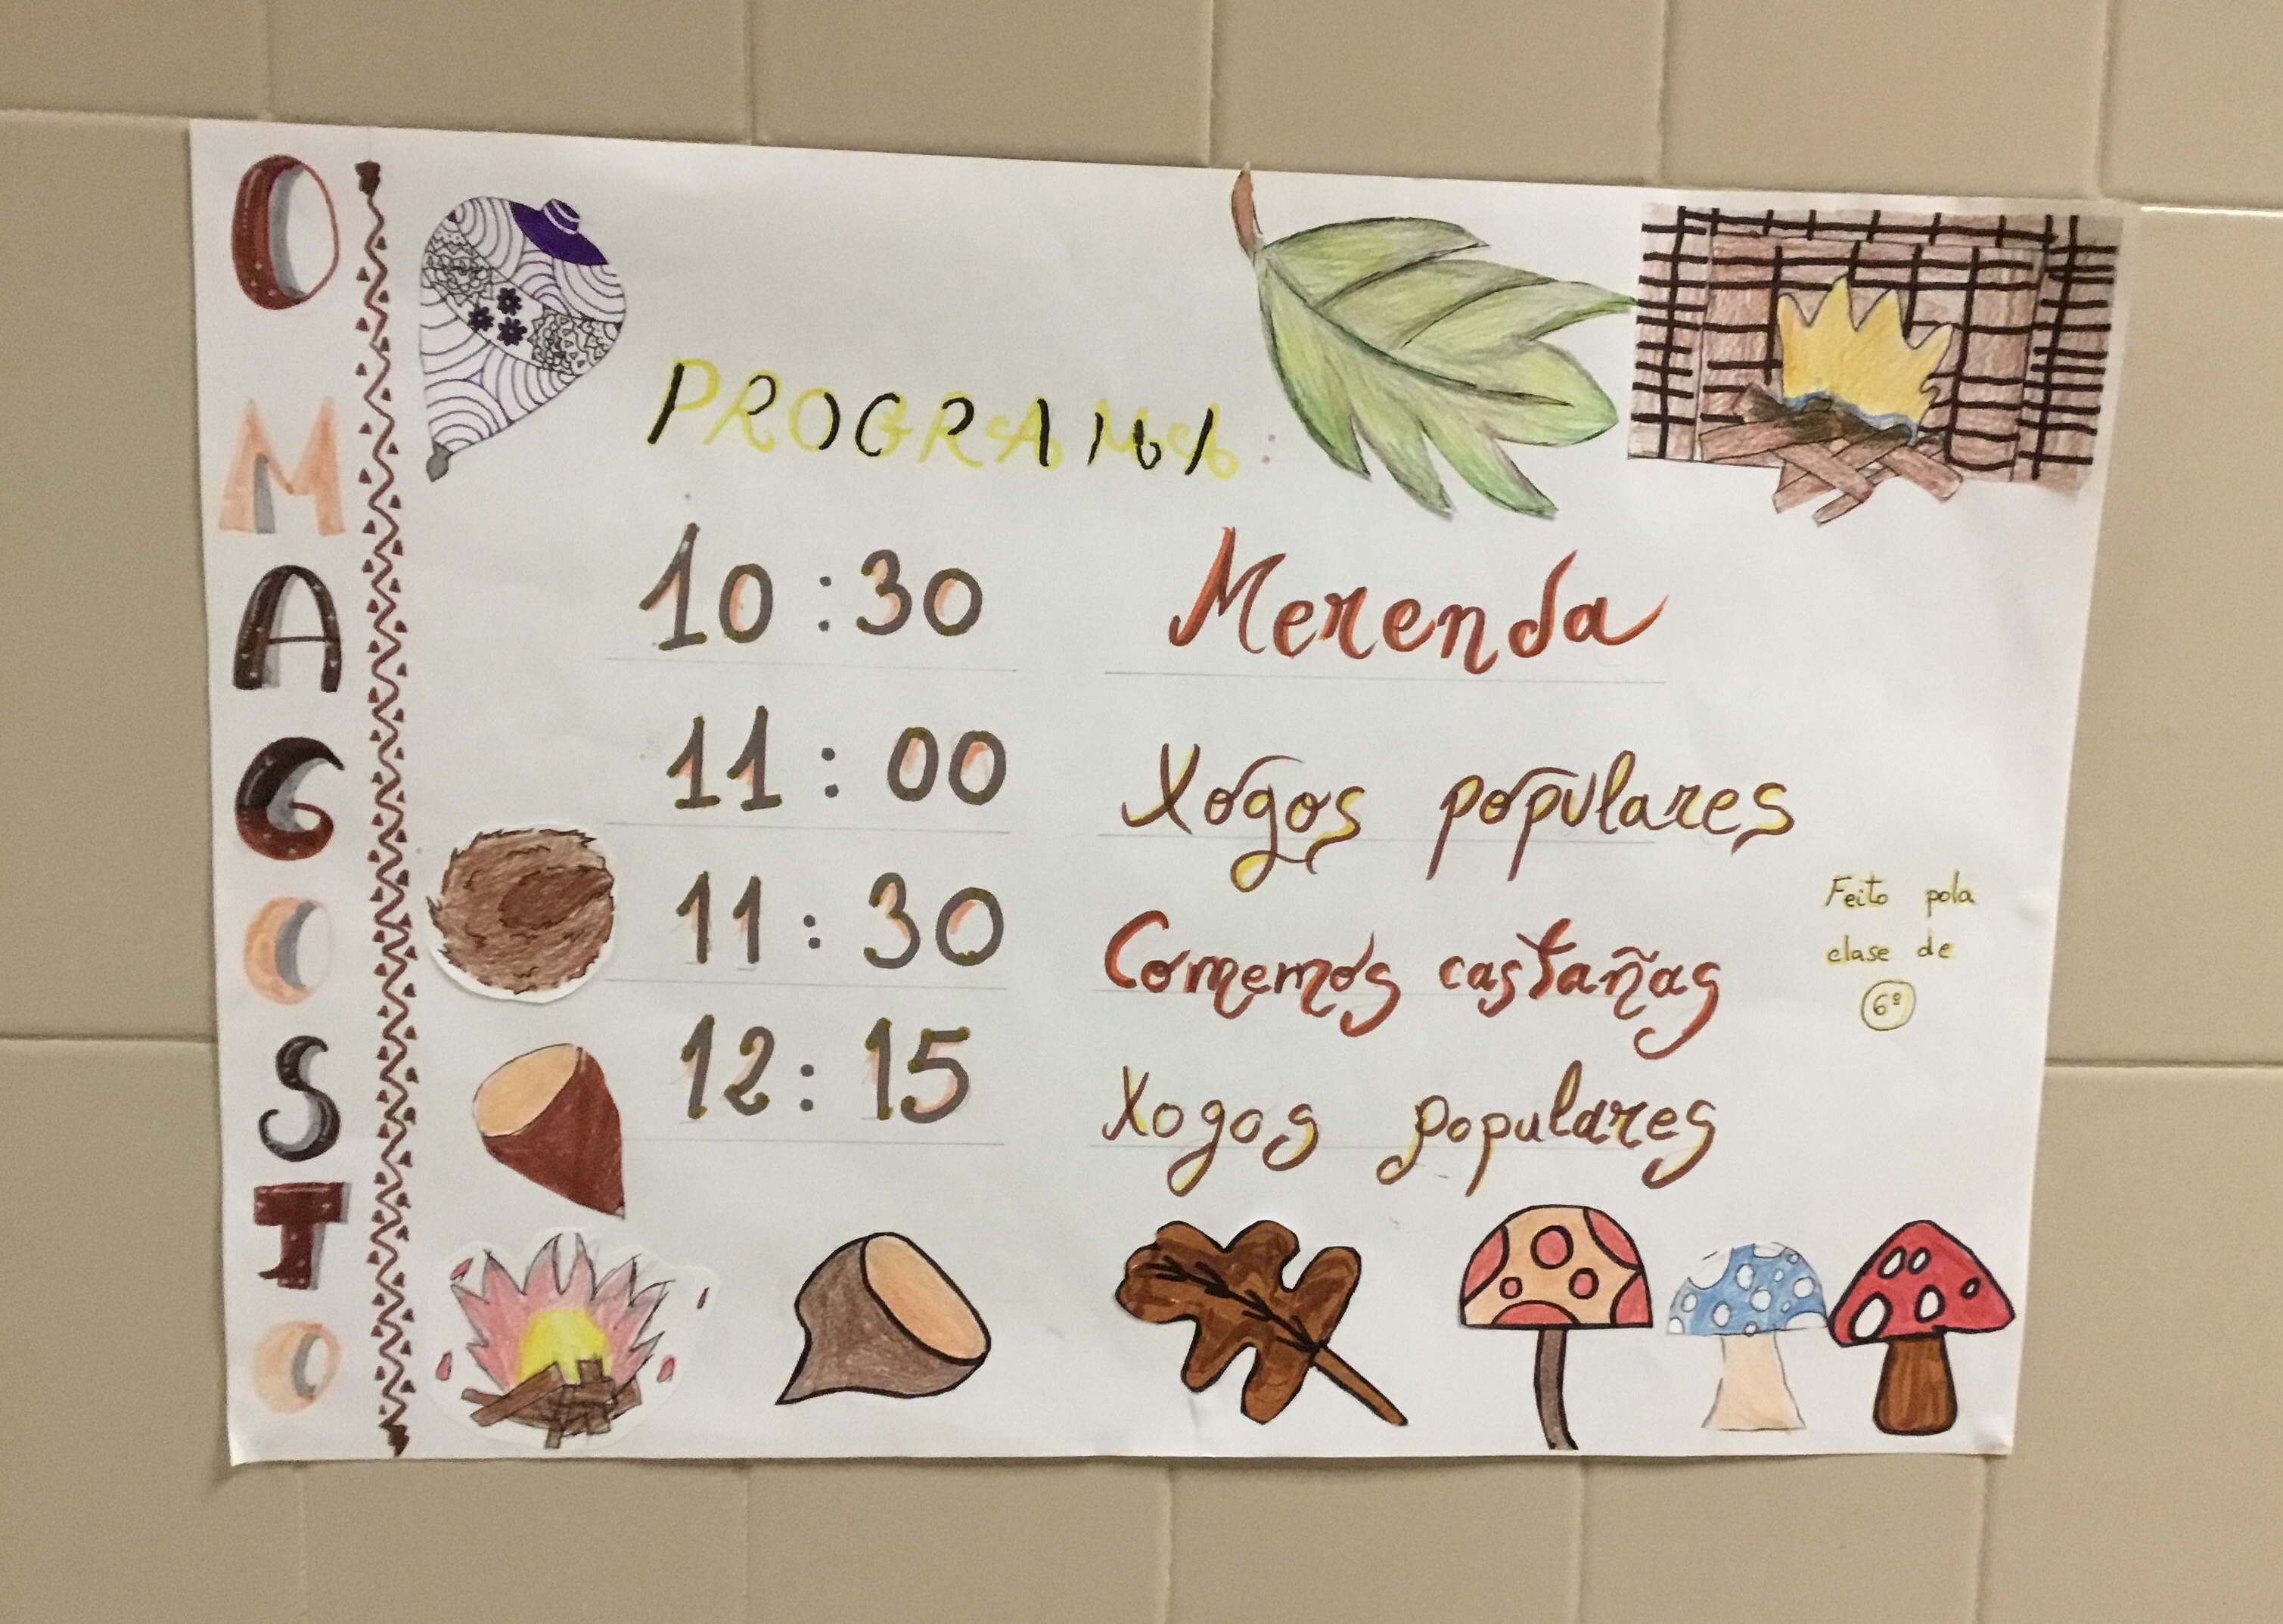 O MAGOSTO
PROGRAMA:
10:30 Merenda
11:00 Xogos populares
11:30 Comemos castañas
12:15 Xogos populares
Feito pola
clase de
6º